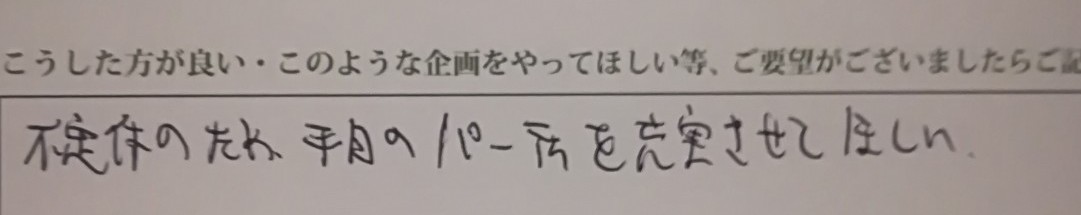 こうした方が良い・このような企画をやってほしい等、ご要望がございましたらご記
不定休のため、平日のパーティを充実させてほしい。